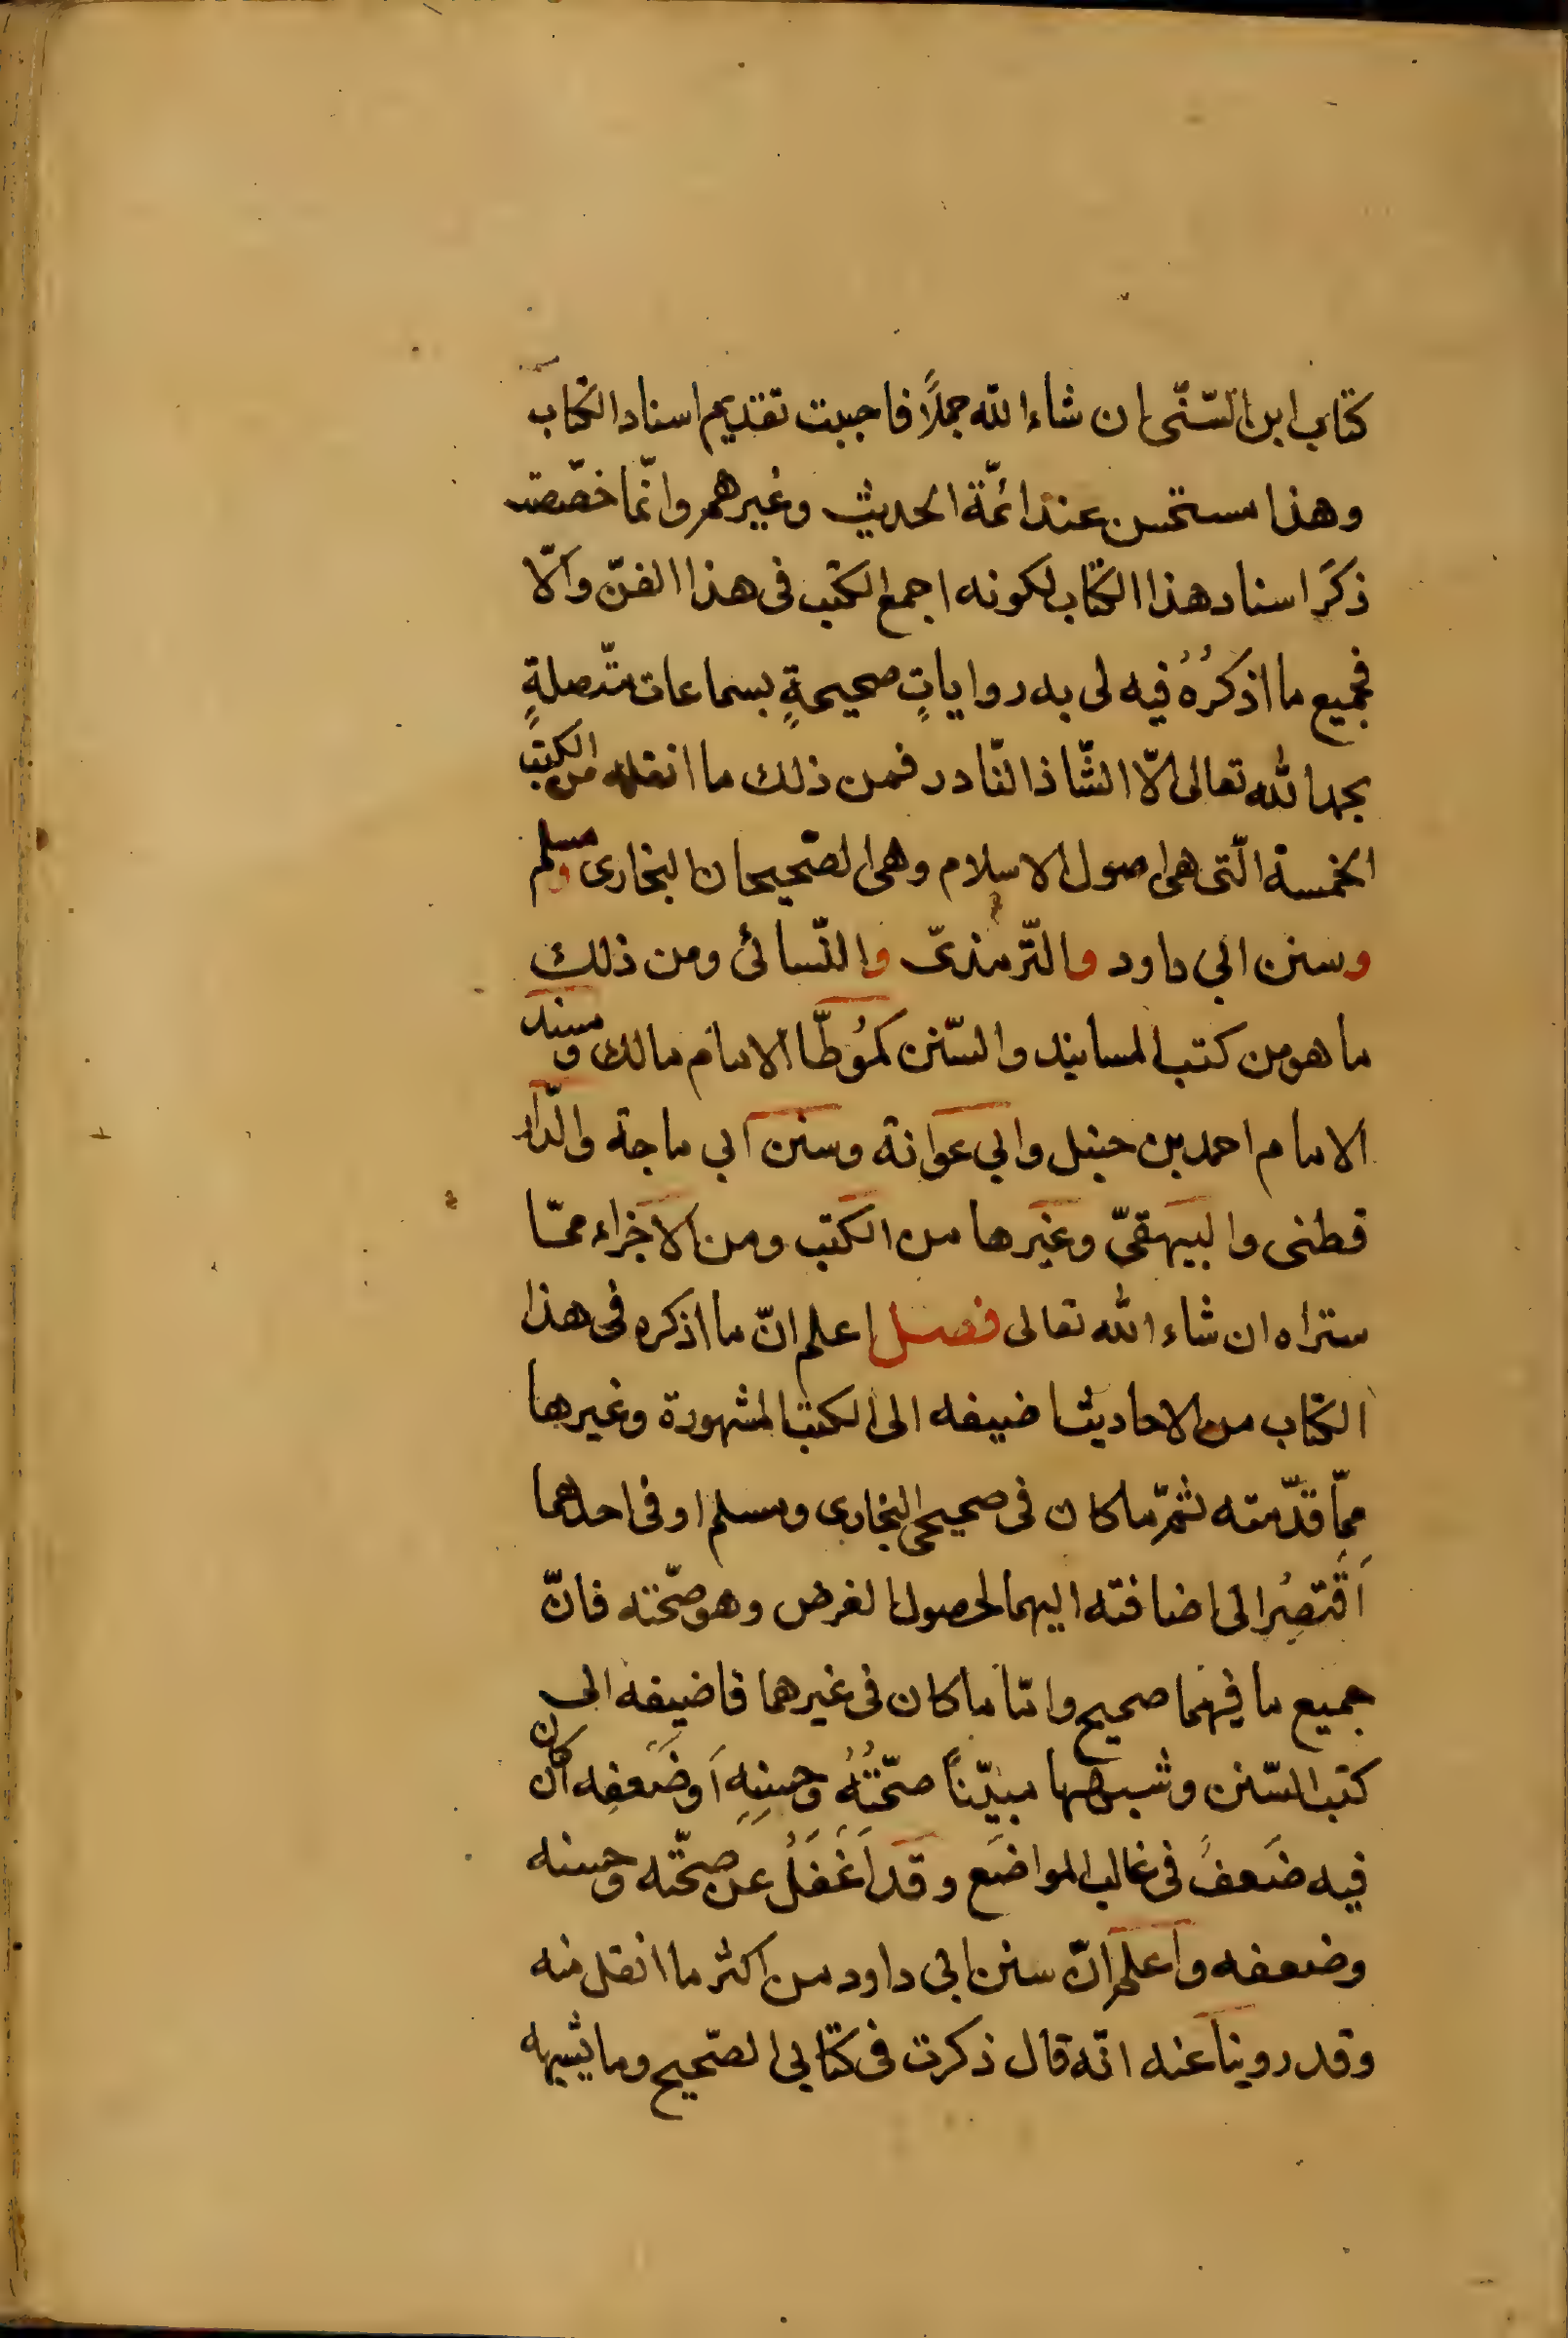 كتاب ابن السّنّى ان شاء الله جملًا فاحببت تقديم اسناد الكتاب
وهذا مستحسن عند ائمّة الحديث وغيرهم وانّما خصّصت
ذكر اسناد هذا الكتاب لكونه اجمع الكتب فى هذا الفنّ والّا
فجميع ما اذكرُهُ فيه لى به رواياتٍ صحيحةٍ بسماعات متّصلةٍ
بحمد الله تعالى الّا الشّاذ النّادر فمن ذلك ما انقله من الكتب
الخمسة الّتى هى اصول الاسلام وهى الصّحيحان البخارى ومسلم
وسنن ابى داود والتّرمذىّ والنّسائى ومن ذلك
ما هو من كتب المسانيد والسّنن كموُطّا الامام مالك ومسند
الامام احمد بن حنبل وابى عوانة وسنن ابى ماجة والدّار
قطنى والبيهقىّ وغيرها من الكتب ومن الاجزاء ممّا
ستراه ان شاء الله تعالى فصل اعلم انّ ما اذكره فى هذا
الكتاب من الاحاديث اضيفه الى الكتب المشهورة وغيرها
ممّا قدّمته ثمّ ما كان فى صحيحى البخارى ومسلم او فى احدهما
اَقتصِرُ الى اضافته اليهما لحصول الغرض وهو صحّته فانّ
جميع ما فيهما صحيح وامّا ما كان فى غيرهما فاضيفه الى
كتب السّنن وشبهها مبيّناً صحّتُهُ وحسنِهِ اَو ضَعفِه ان كان
فيه ضَعفً فى غالب المواضع وقد اَغفَلُ عن صحّته وحسنه
وضعفه واعلم انّ سنن ابى داود من اكثر ما انقل منه
وقد روينا عنه انّه قال ذكرت فى كتابى الصّحيح وما يشبهه